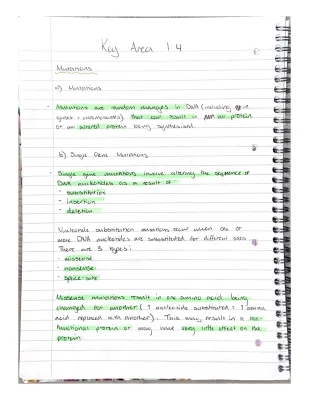 Key Area 1.4
Mutations
a) Mutations
- Mutations are random changes in DNA (including in
genes + chromosomes) that can result in no protein
or an altered protein being synthesised.
b) Single Gene Mutations
- Single gene mutations involve altering the sequence of
DNA nucleotides as a result of -
- substitution
- insertion
- deletion
Nucleotide substitution mutations occur when one or
more DNA nucleotides are substituted for different ones.
There are 3 types:
- missense
- nonsense
- splice-site
Missense mutations result in one amino acid being
changed for another (1 nucleotide substituted = 1 amino
acid replaced with another). This may result in a non-
functional protein or may have very little effect on the
protein